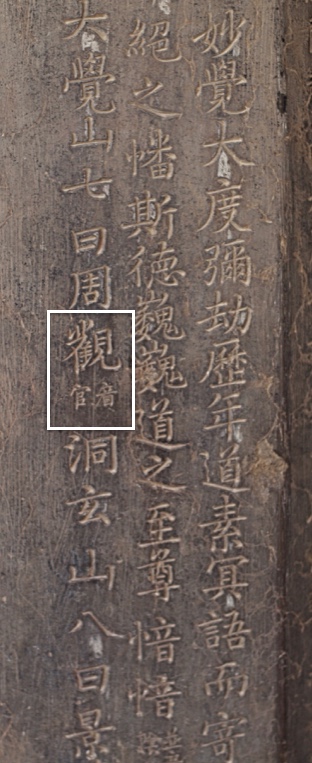 妙覺大度彌劫歷年道素冥語而寄
絕之幡斯德巍巍道之至尊愔愔
大覺山七曰周觀廣官洞玄山八曰景